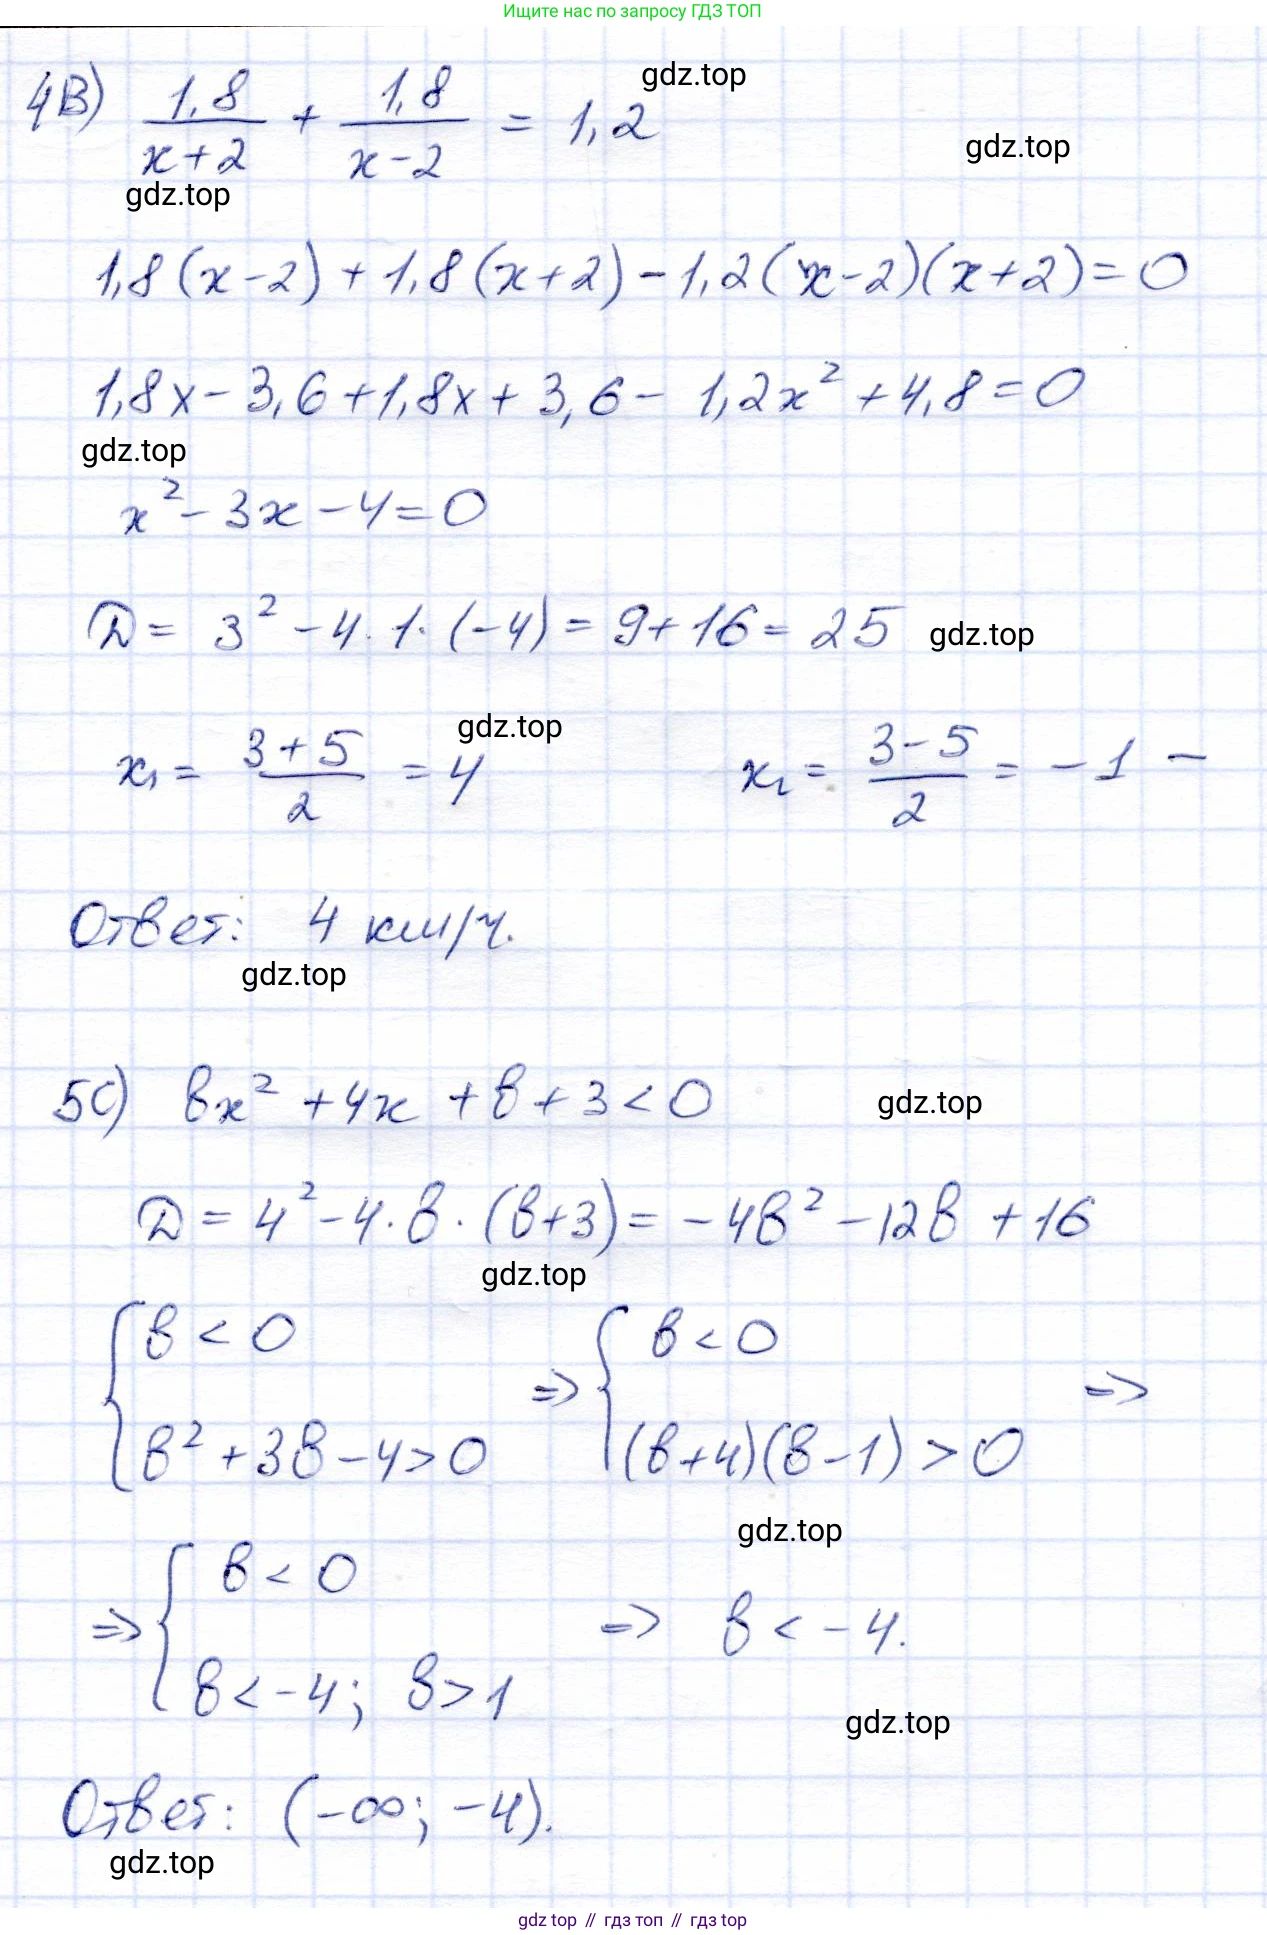 Ищите нас по запросу ГДЗ ТОП
4В) 1,8/(x+2) + 1,8/(x-2) = 1,2
gdz.top
gdz.top
gdz.top
1,8(x-2)+1,8(x+2)-1,2(x-2)(x+2)=0
1,8x-3,6+1,8x+3,6-1,2x²+4,8=0
gdz.top
x²-3x-4=0
D = 3²-4·1·(-4)=9+16=25
gdz.top
gdz.top
x₁ = (3+5)/2 = 4 x₂ = (3-5)/2 = -1 -
Ответ: 4 км/ч.
gdz.top
5С) вx²+4x+в+3<0
gdz.top
D=4²-4·в·(в+3)=-4в²-12в+16
gdz.top
{ в<0 => { в<0 =>
в²+3в-4>0 (в+4)(в-1)>0
gdz.top
=> { в<0 => в<-4.
в<-4; в>1
gdz.top
Ответ: (-∞; -4).
gdz.top
gdz top // гдз топ // gdz top